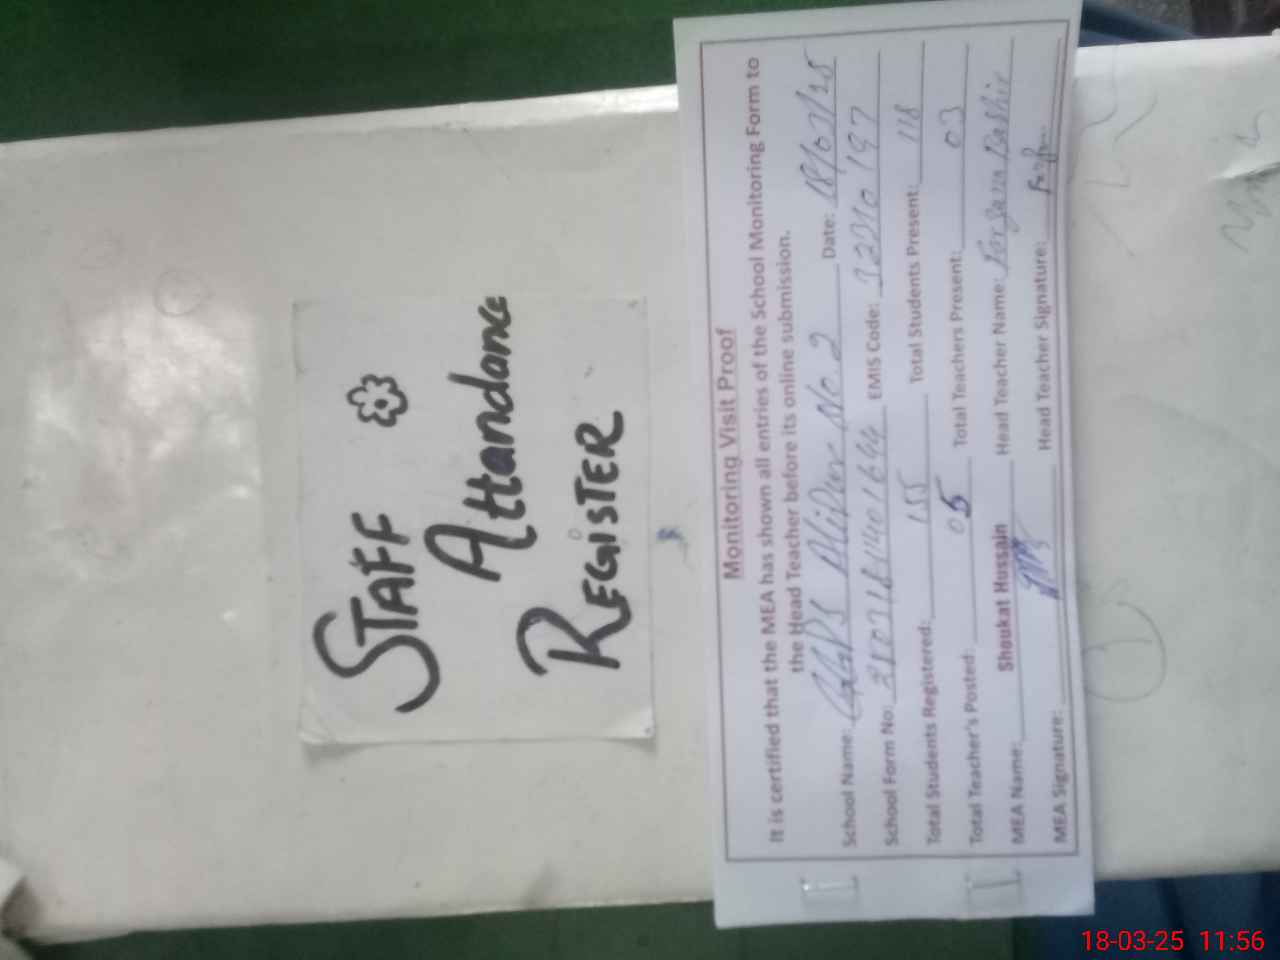 STAFF
Attandance
REGISTER
Monitoring Visit Proof
It is certified that the MEA has shown all entries of the School Monitoring Form to
the Head Teacher before its online submission.
School Name: GGPS Alipur No.2 Date: 18/03/25
School Form No: EMIS Code: 32310197
Total Students Registered: 155 Total Students Present: 118
Total Teacher's Posted: 05 Total Teachers Present: 03
MEA Name: Shoukat Hussain Head Teacher Name: Farzana Bashir
MEA Signature: Head Teacher Signature:
18-03-25 11:56